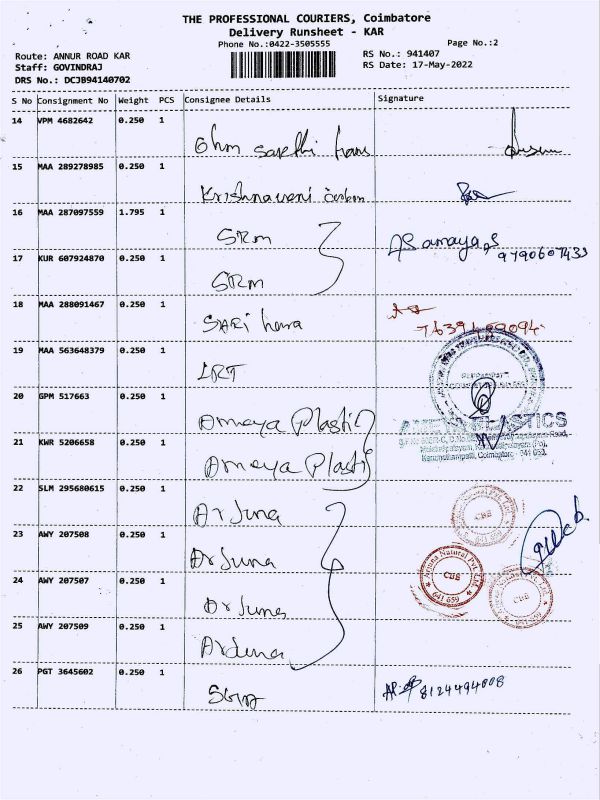 THE PROFESSIONAL COURIERS, Coimbatore
Delivery Runsheet - KAR
Phone No.:0422-3505555
Page No.:2
Route: ANNUR ROAD KAR
RS No.: 941407
Staff: GOVINDRAJ
RS Date: 17-May-2022
DRS No.: DCJB94140702
S No Consignment No Weight PCS Consignee Details Signature
14 VPM 4682642 0.250 1 Ohm sarethi
15 MAA 289278985 0.250 1 Krishnaveni
16 MAA 287097559 1.795 1 SRM
9790607433
17 KUR 607924870 0.250 1 SRM
18 MAA 288091467 0.250 1 SARI
19 MAA 563648379 0.250 1 LRT
20 GPM 517663 0.250 1 Amaya Plastic
21 KWR 5206658 0.250 1 Amaya Plasti
PLASTICS
Coimbatore - 641 659.
22 SLM 295680615 0.250 1 Arjuna
23 AWY 207508 0.250 1 Arjuna
Arjuna Natural Pvt. Ltd.
CBE
641 659
24 AWY 207507 0.250 1 Arjuna
CBE
25 AWY 207509 0.250 1 Arjuna
26 PGT 3645602 0.250 1
8124494008